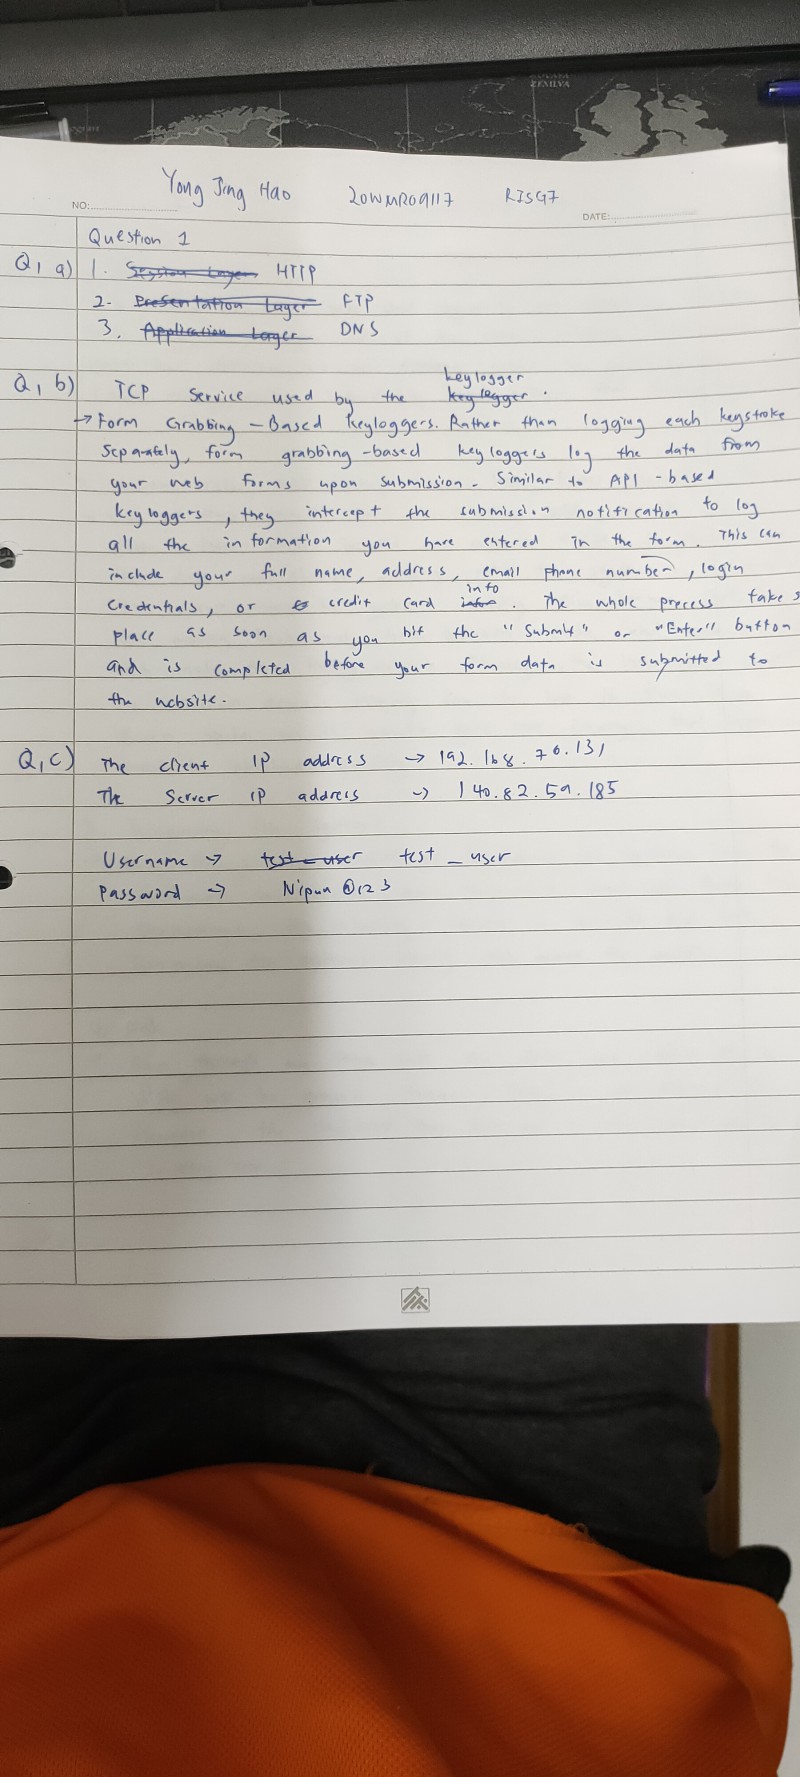 Yong Jing Hao 20WMR09117 RISG7
NO: DATE:
Question 1
Q1 a) 1. Session Layer HTTP
2. Presentation Layer FTP
3. Application Layer DNS
keylogger
Q1 b) TCP service used by the keylogger .
→ Form Grabbing - Based Keyloggers. Rather than logging each keystroke
separately, form grabbing-based keyloggers log the data from
your web forms upon submission. Similar to API-based
keyloggers, they intercept the submission notification to log
all the information you have entered in the form. This can
include your full name, address, email phone number, login
info
credentials, or credit card . The whole process takes
place as soon as you hit the "Submit" or "Enter" button
and is completed before your form data is submitted to
the website.
Q1 c) The client IP address → 192.168.76.131
The Server IP address → 140.82.59.185
Username → test_user test_user
Password → Nipun@123